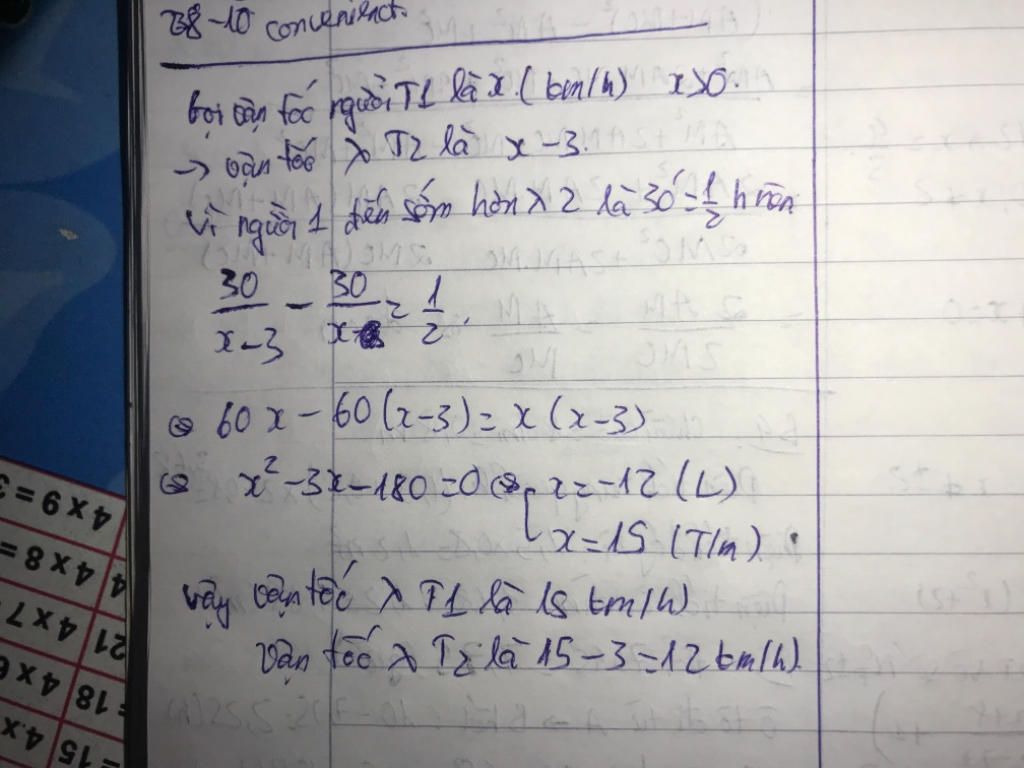 38-10 convenient.
Gọi vận tốc người T1 là x (km/h) x>0.
→ vận tốc λ T2 là x-3.
Vì người 1 đến sớm hơn λ 2 là 30' = 1/2 h nên
30/(x-3) - 30/x = 1/2.
⇔ 60x - 60(x-3) = x(x-3)
⇔ x² - 3x - 180 = 0 ⇔ [ x = -12 (L)
x = 15 (T/m).
Vậy vận tốc λ T1 là 15 km/h)
Vận tốc λ T2 là 15-3=12 km/h)
4 x 9 = 3
4 x 8 =
21 4 x 7
= 18 4 x 6
= 15 4 x